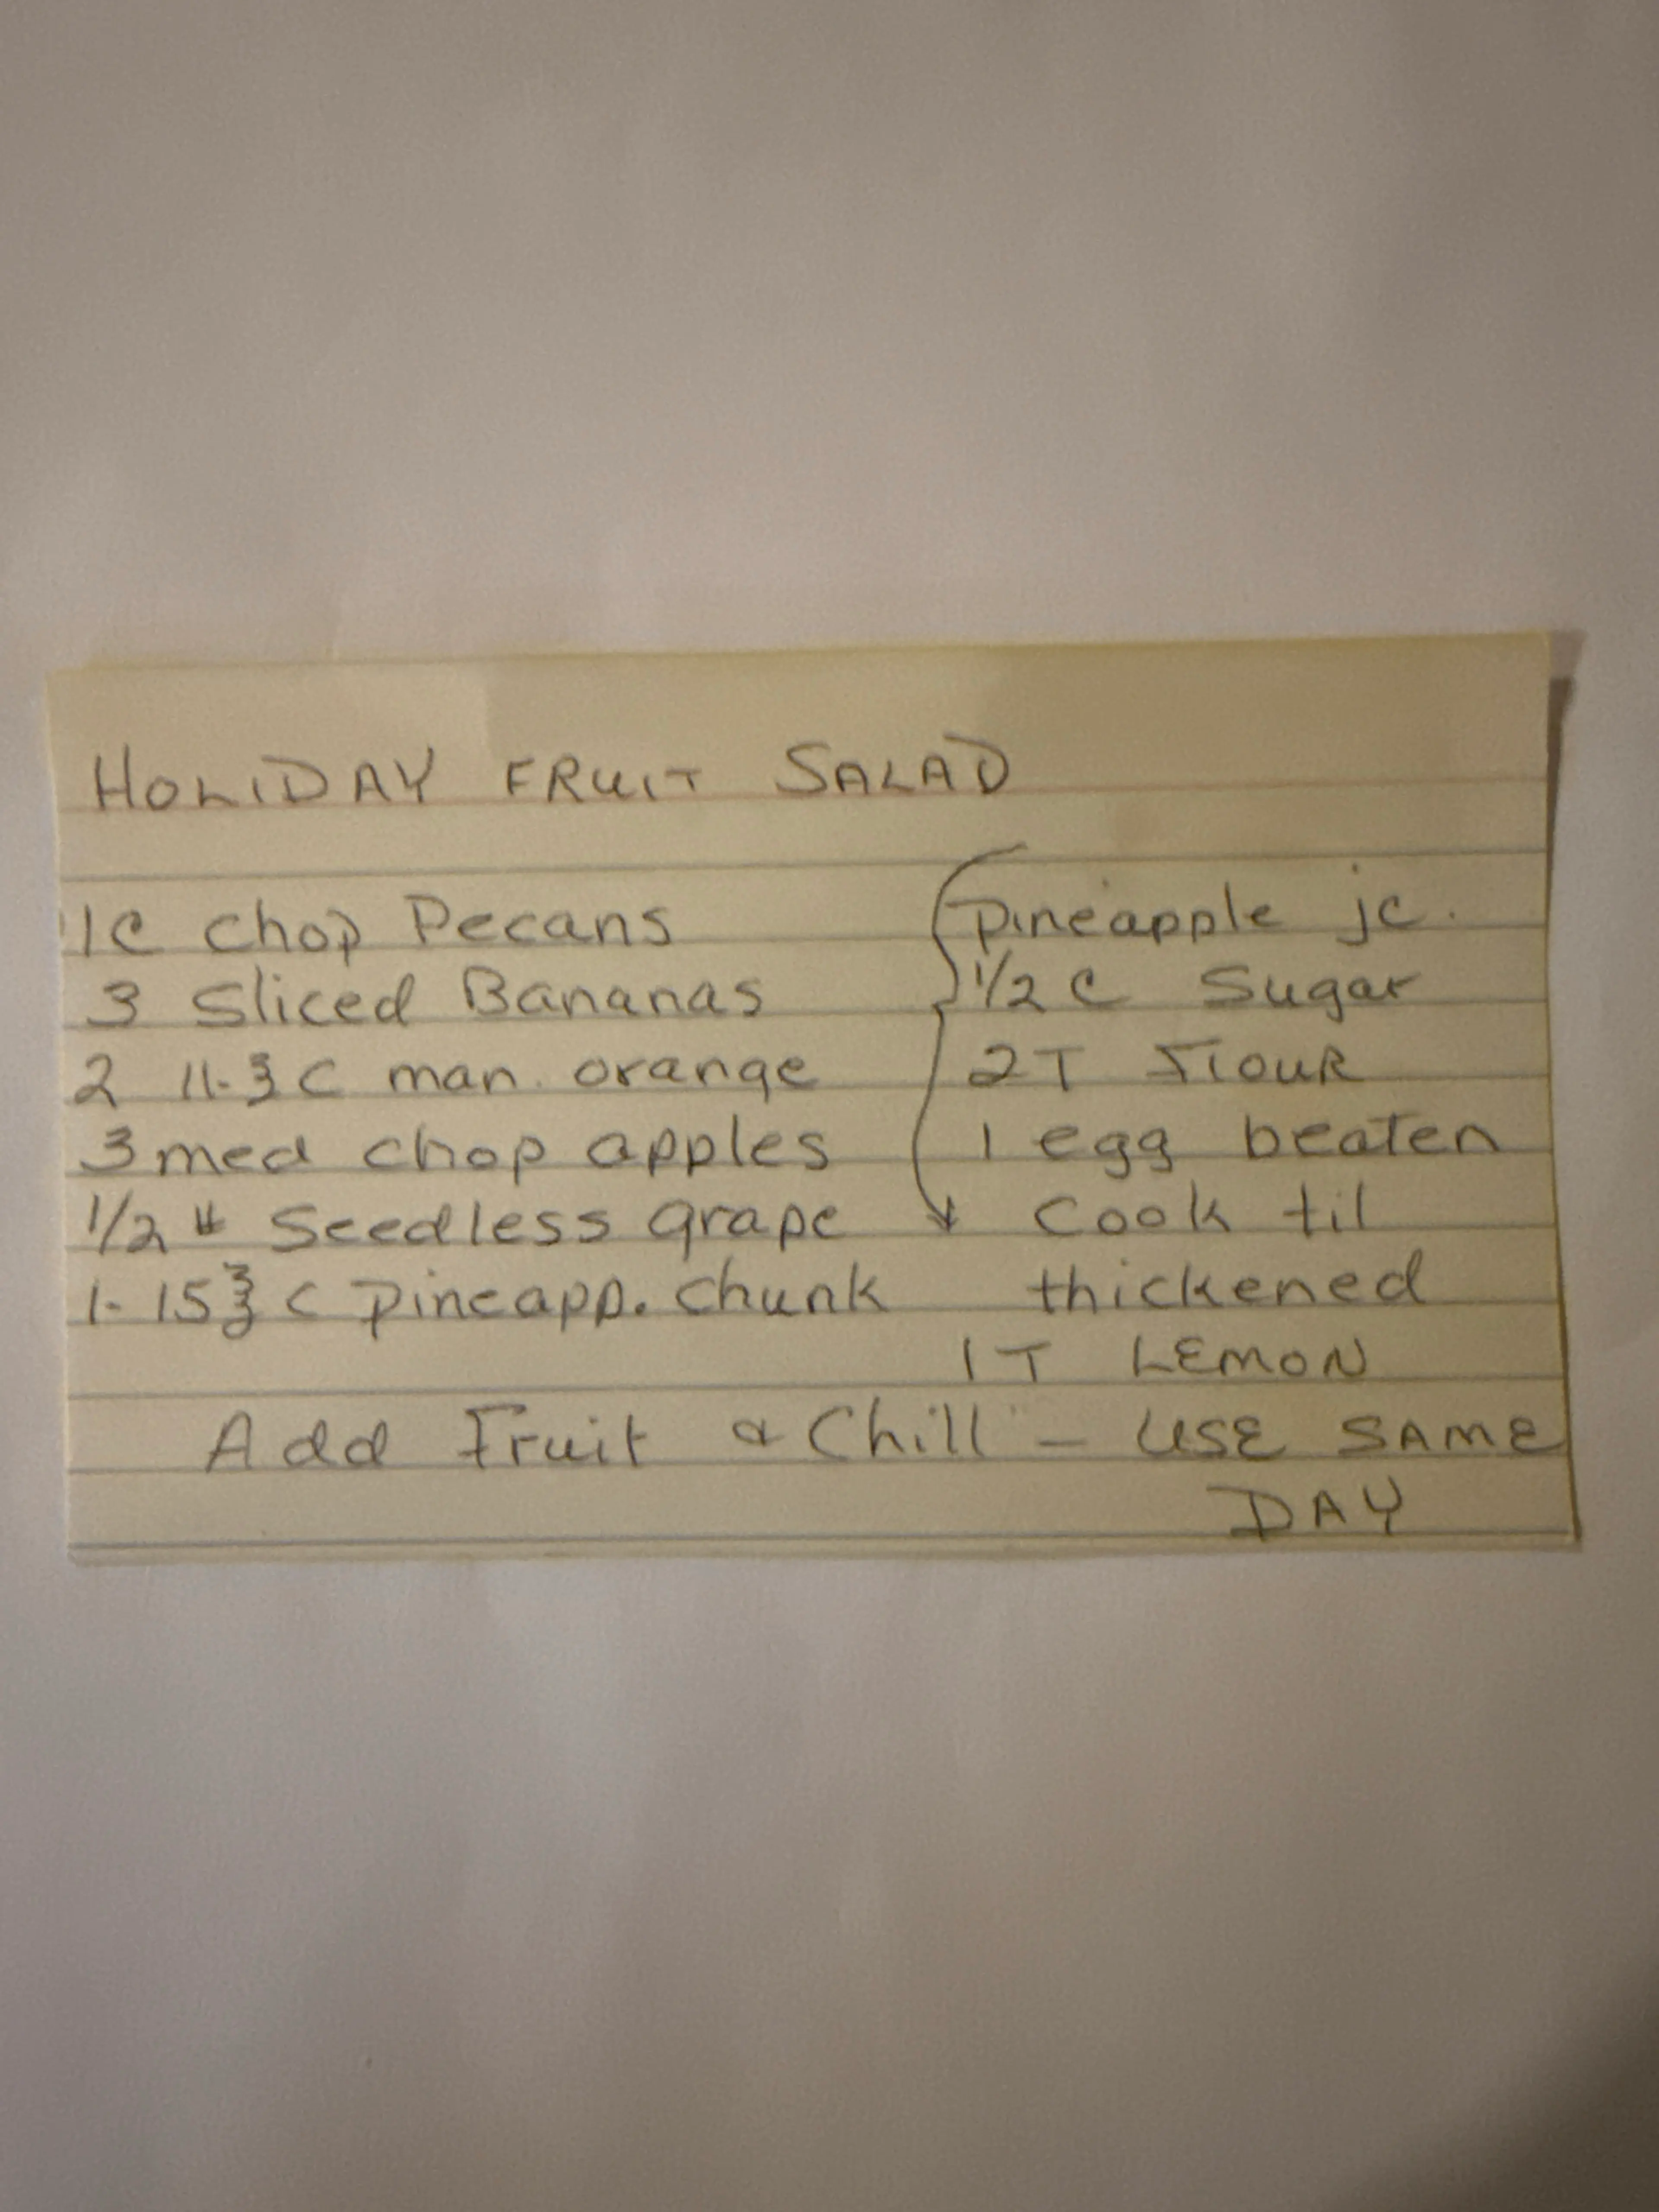 HOLIDAY FRUIT SALAD
1C chop Pecans
3 Sliced Bananas
2 11-℥ C man. orange
3 med chop apples
1/2 # Seedless grape
1- 15 ℥ C pineapp. chunk
pineapple jc.
1/2 C Sugar
2T Flour
1 egg beaten
Cook til
thickened
1 T LEMON
Add Fruit & Chill - USE SAME
DAY